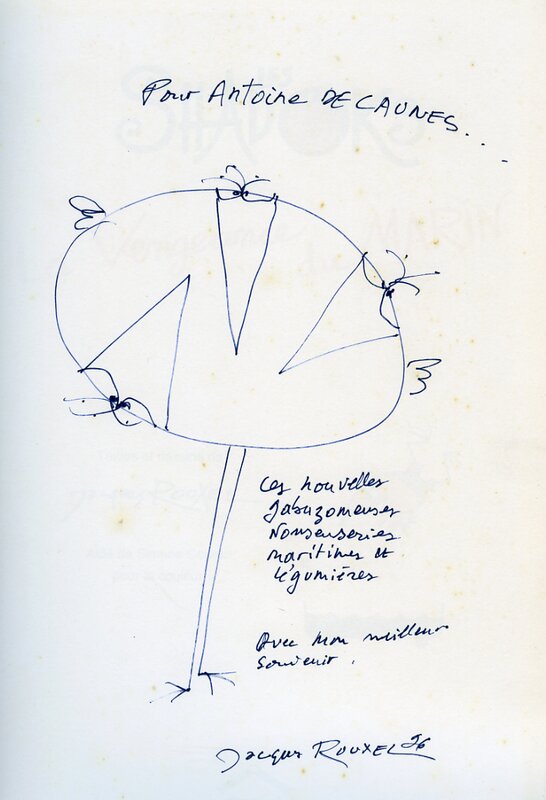 Pour Antoine DE CAUNES...
Ces nouvelles
gabuzomeuses
Nonsenseries
maritimes et
légumières
Avec mon meilleur
souvenir.
Jacques ROUXEL 96